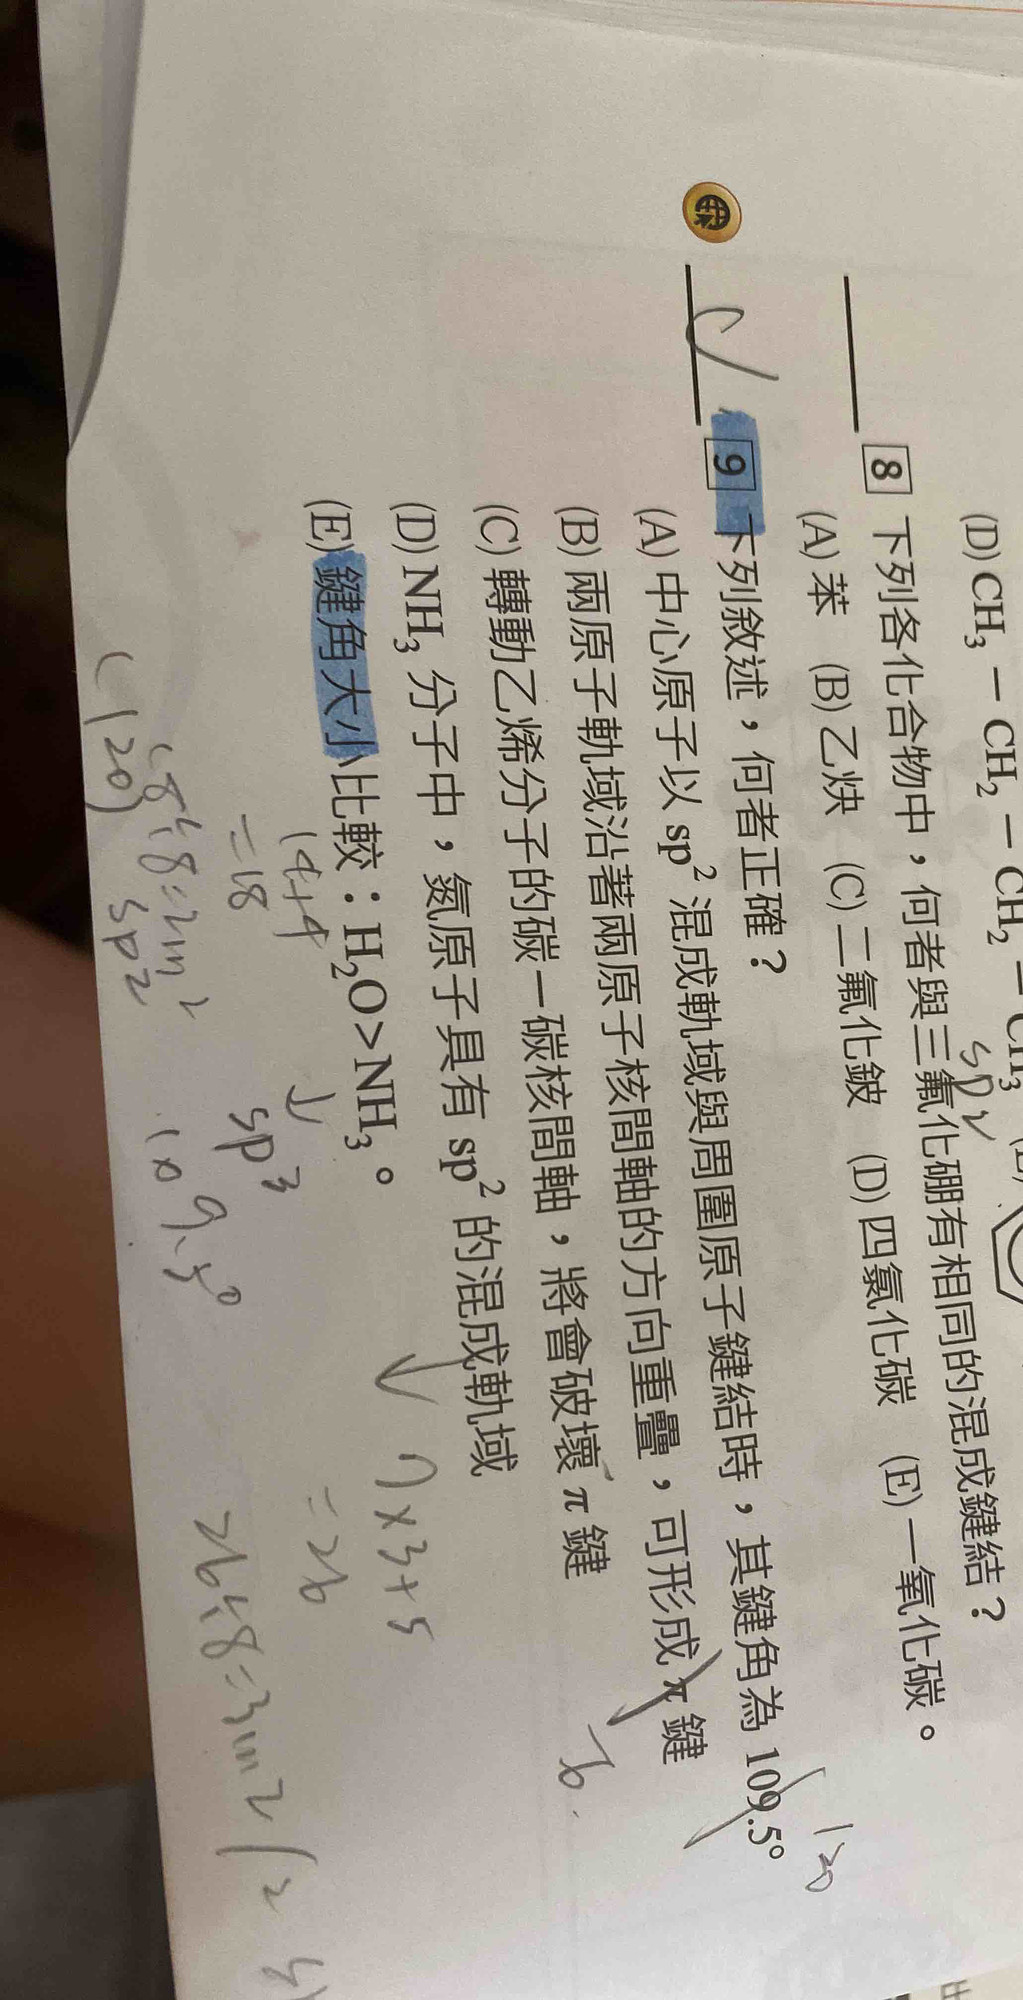 (D) CH₃－CH₂－CH₂－CH₃
sp²
8 下列各化合物中，何者與三氟化硼有相同的混成鍵結？
(A) 苯 (B) 乙炔 (C) 二氟化鈹 (D) 四氯化碳 (E) 一氧化碳。
C
9 下列敘述，何者正確？
(A) 中心原子以 sp² 混成軌域與周圍原子鍵結時，其鍵角為 109.5°
120
(B) 兩原子軌域沿著兩原子核間軸的方向重疊，可形成 π 鍵
(C) 轉動乙烯分子的碳－碳核間軸，將會破壞 π 鍵
(D) NH₃ 分子中，氮原子具有 sp² 的混成軌域
(E) 鍵角大小比較：H₂O>NH₃。
1×3+5
=26
26÷8=3...2
14+4
=18
sp³
109.5°
18÷8=2...2
sp2
(120)